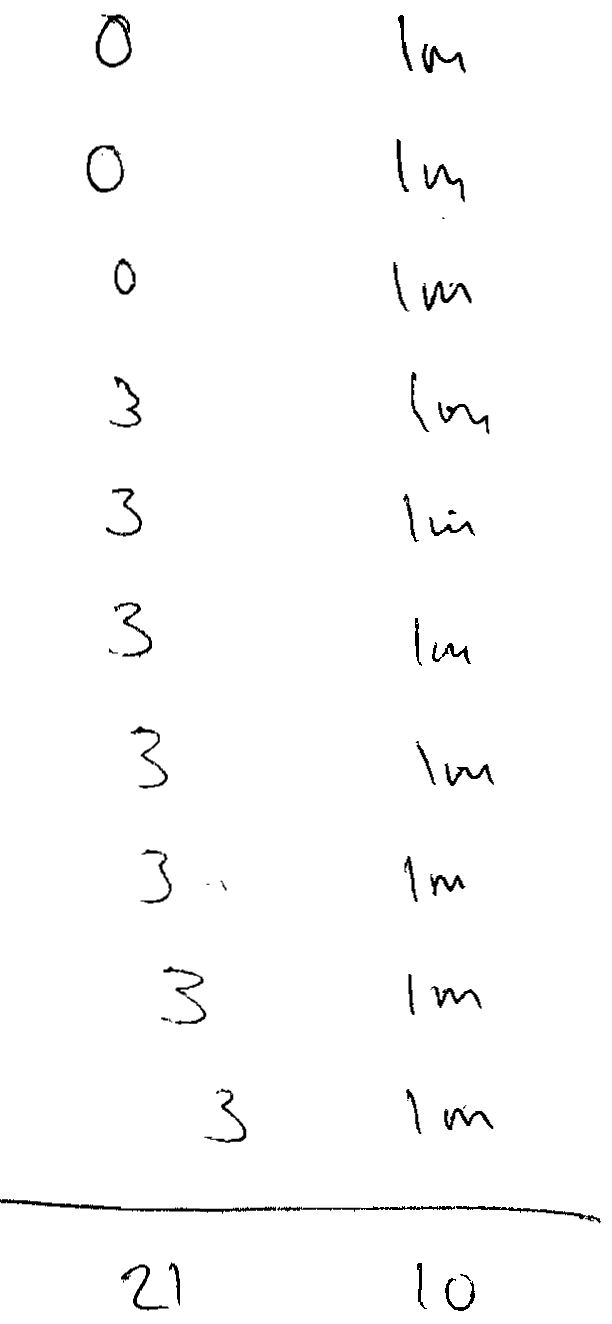 0 1m
0 1m
0 1m
3 1m
3 1m
3 1m
3 1m
3 1m
3 1m
3 1m
21 10